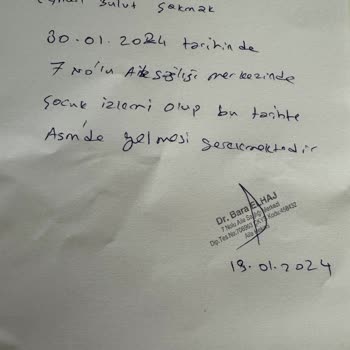 Bulut Çakmak
30.01.2024 tarihinde
7 No'lu Aile sağlığı merkezinde
Çocuk izlemi olup bu tarihte
Asm'de gelmesi gerekmektedir
Dr. Bara ELHAJ
7 Nolu Aile Sağlığı Merkezi
Aile Hekimi
19.01.2024